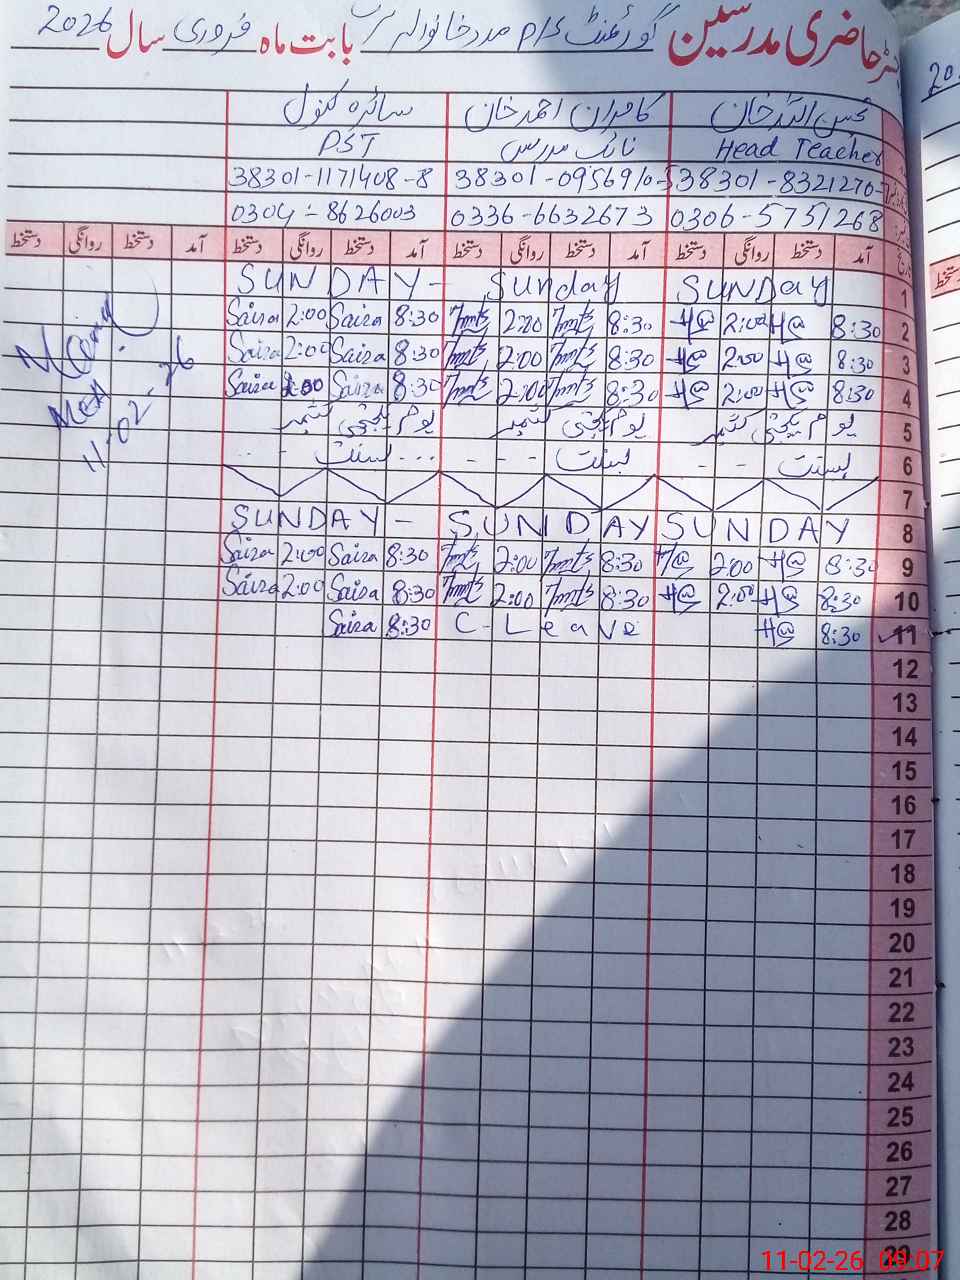 حاضری مدرسین گورنمنٹ P/S مدد خانوالہ بابت ماہ فروری سال 2026
محسن اللہ خان کامران احمد خان سائرہ کنول
Head Teacher نائب مدرس PST
38301-8321270- 38301-0956910- 38301-1171408-8
0306-5751268 0336-6632673 0304-8626003
آمد دستخط روانگی دستخط آمد دستخط روانگی دستخط آمد دستخط روانگی دستخط آمد دستخط روانگی دستخط
1 SUNDAY Sunday SUNDAY-
2 8:30 2:00 8:30 2:00 8:30 Saiza 2:00 Saiza
3 8:30 2:00 8:30 2:00 8:30 Saiza 2:00 Saiza
4 8:30 2:00 8:30 2:00 8:30 Saiza 2:00 Saiza
5 یوم یکجہتی کشمیر یوم یکجہتی کشمیر یوم یکجہتی کشمیر
6 بسنت - - بسنت - - - بسنت - -
7
8 SUNDAY SUNDAY SUNDAY-
9 8:30 2:00 8:30 2:00 8:30 Saiza 2:00 Saiza
10 8:30 2:00 8:30 2:00 8:30 Saiza 2:00 Saiza
11 8:30 C-Leave 8:30 Saiza
12
13
14
15
16
17
18
19
20
21
22
23
24
25
26
27
28
29
MEA
11-02-26
11-02-26 09:07